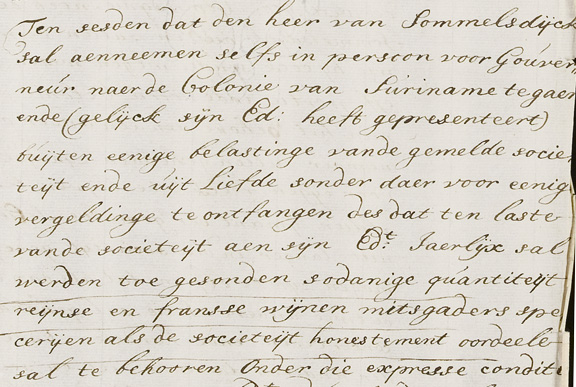 Ten sesden dat den heer van Sommelsdijck
sal aenneemen selfs in persoon voor Goúver
neúr naer de Colonie van Súriname te gaen
ende (gelijck sijn Ed: heeft gepresenteert)
buijten eenige belastinge vande gemelde socie
teijt ende uijt Liefde sonder daer voor eenig
vergeldinge te ontfangen des dat ten laste
vande societeijt aen sijn Ed.t Jaerlijx sal
werden toe gesonden sodanige quántiteijt
reijnse en fransse wijnen mitsgaders spe
cerijen als de societeijt honestement oordeele
sal te behooren Onder die expresse condit